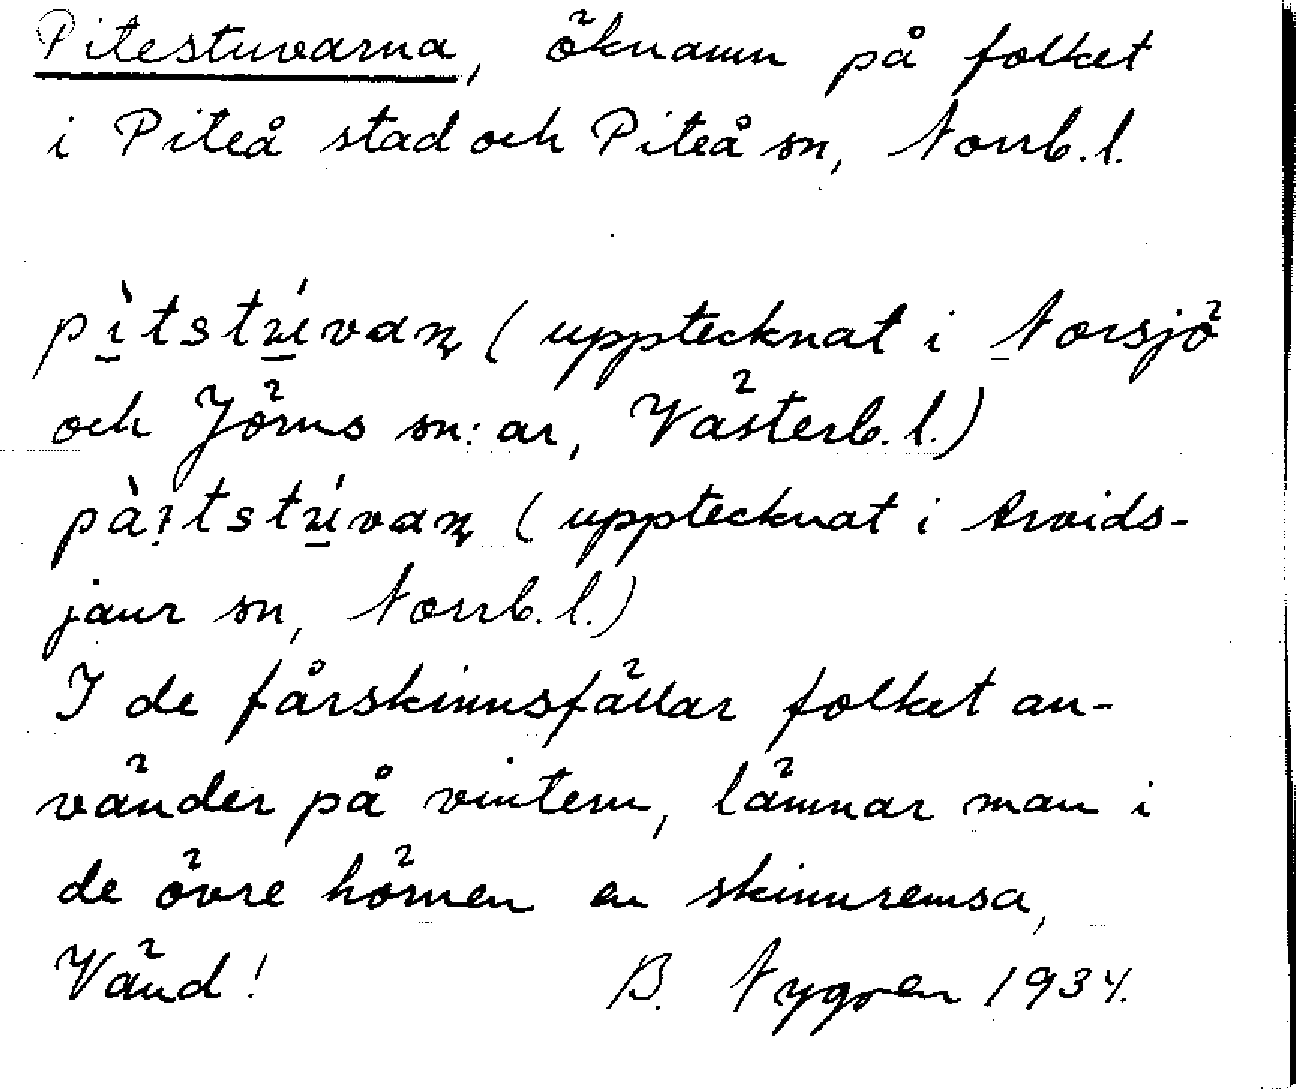 Pitestuvarna, öknamn på folket
i Piteå stad och Piteå sn, Norrb.l.
pı̱̀tstu̱̍van̥ (upptecknat i Norsjö
och Jörns sn:ar, Västerb.l.)
pàı̣tstu̱̍van̥ (upptecknat i Arvids-
jaur sn, Norrb.l.)
I de fårskinnsfällar folket an-
vänder på vintern, lämnar man i
de övre hörnen en skinnremsa,
Vänd! B. Nygren 1934.